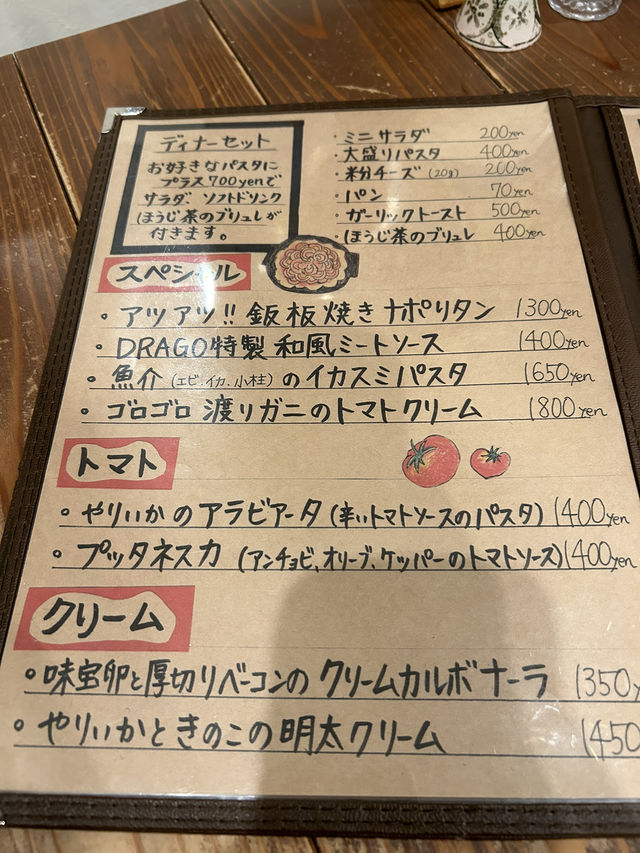 ディナーセット
お好きなパスタに
プラス700yenで
サラダ、ソフトドリンク
ほうじ茶のブリュレが
付きます。
・ミニサラダ 200yen
・大盛りパスタ 400yen
・粉チーズ(20g) 200yen
・パン 70yen
・ガーリックトースト 500yen
・ほうじ茶のブリュレ 400yen
スペシャル
・アツアツ!!鈑板焼きナポリタン 1300yen
・DRAGO特製 和風ミートソース 1400yen
・魚介(エビ、イカ、小柱)のイカスミパスタ 1650yen
・ゴロゴロ 渡リガニのトマトクリーム 1800yen
トマト
・やりいかのアラビアータ(辛いトマトソースのパスタ) 1400yen
・プッタネスカ(アンチョビ、オリーブ、ケッパーのトマトソース) 1400yen
クリーム
・味宝卵と厚切りベーコンの クリームカルボナーラ 1350y
・やりいかときのこの明太クリーム 1450